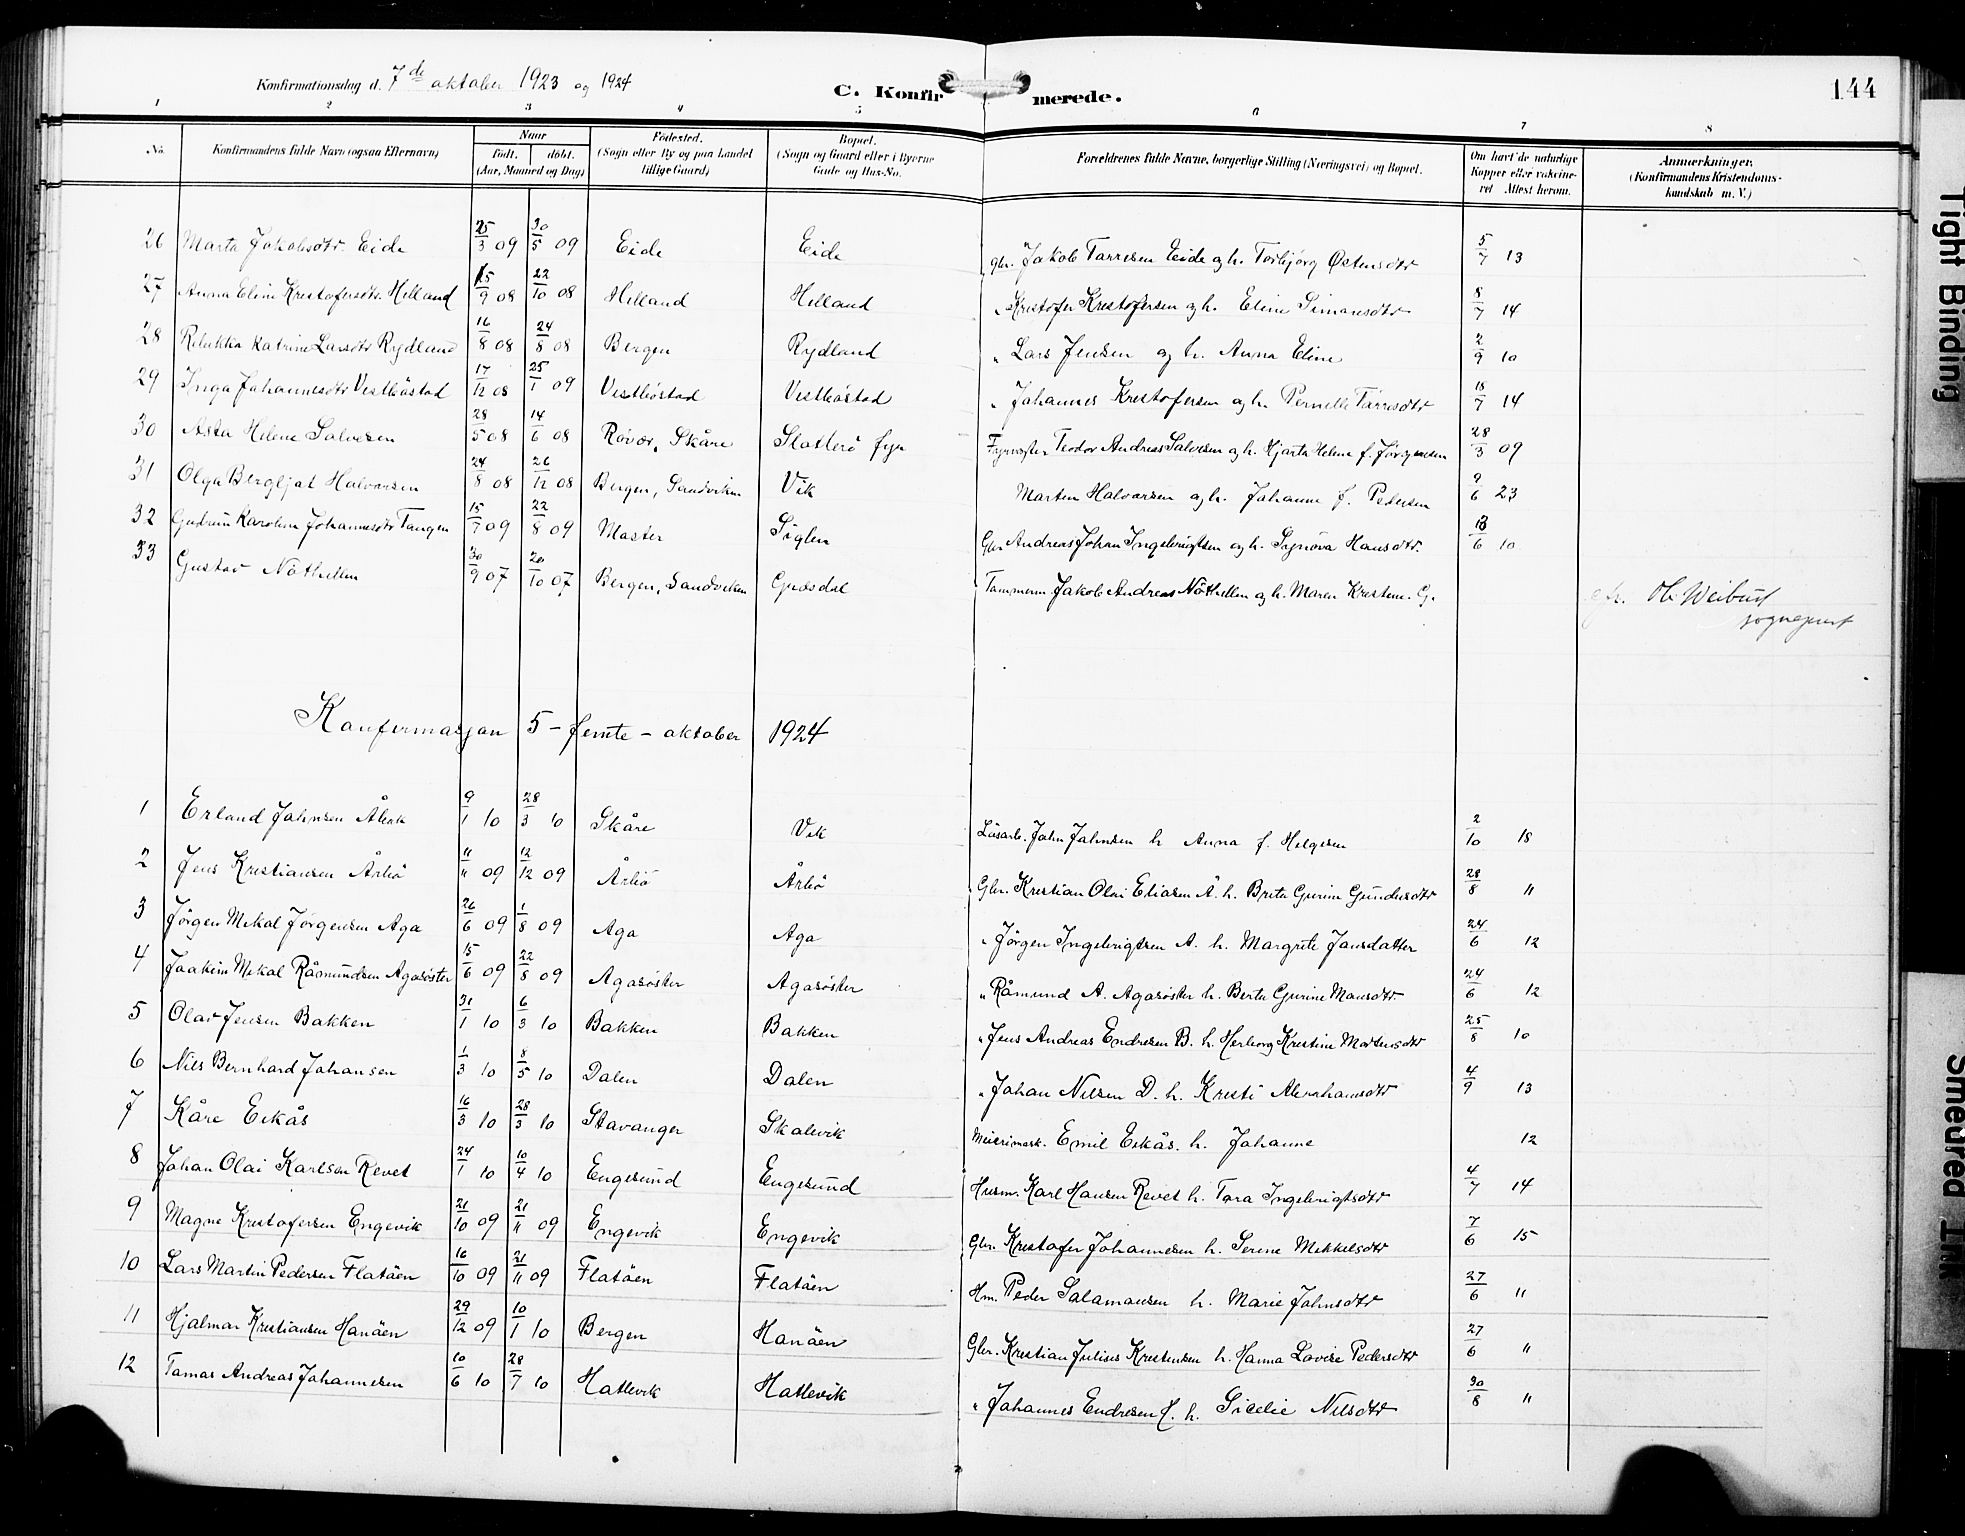 Konfirmationsdag d. 7de oktober 1923 og 1924 C. Konfirmerede. 144
1 2 3 4 5 6 7 8
No. Konfirmandens fulde Navn (ogsaa Efternavn) Naar født. døbt. (Aar, Maaned og Dag) Fødested. (Sogn eller By og paa Landet tillige Gaard) Bopæl. (Sogn og Gaard eller i Byerne Gade og Hus-No. Forældrenes fulde Navne, borgerlige Stilling (Næringsvei) og Bopæl. Om havt de naturlige Kopper eller vakcineret Attest herom. Anmærkninger. (Konfirmandens Kristendomskundskab m. V.)
26 Marta Jakobsdtr. Eide 25/3 09 30/5 09 Eide Eide gbr. Jakob Tarresen Eide og h. Torbjørg Østensdtr 5/7 13
27 Anna Eline Kristofersdtr. Helland 15/9 08 22/10 08 Helland Helland " Kristofer Kristofersen og h. Eline Simonsdtr 8/7 14
28 Rebekka Katrine Larsdtr Rydland 16/8 08 24/8 08 Bergen Rydland " Lars Jensen og h. Anna Eline 2/9 10
29 Inga Johannesdtr Vestbøstad 17/12 08 25/1 09 Vestbøstad Vestbøstad " Johannes Kristofersen og h. Pernille Tarresdtr 15/7 14
30 Asta Helene Salvesen 28/5 08 14/6 08 Røvær, Skåre Slotterø fyr Fyrvogter Teodor Andreas Salvesen og h. Hjarta Helene f. Jørgensen 28/3 09
31 Olga Bergljot Halvorsen 24/8 08 26/12 08 Bergen, Sandviken Vik Martin Halvorsen og h. Johanne f. Pedersen 9/6 23
32 Gudrun Karoline Johannesdtr Tangen 15/7 09 22/8 09 Moster Siglen Gbr Andreas Johan Ingebrigtsen og h. Synøva Hansdtr. 13/6 10
33 Gustav Nøthellen 30/9 07 20/10 07 Bergen, Sandviken Græsdal Tømmerm. Jakob Andreas Nøthellen og h. Maren Kristine. G.
Ol. Weibust
sogneprest
Konfirmasjon 5 - femte - oktober 1924
1 Erland Johnsen Ålvik 9/1 10 28/3 10 Skåre Vik Løsarb. John Johnsen h Anna f. Helgesen 2/10 18
2 Jens Kristiansen Årbø 11/11 09 12/12 09 Årbø Årbø Gbr. Kristian Olai Eliasen Å. h. Brita Gurine Gundersdtr 28/8 "
3 Jörgen Mikal Jörgensen Aga 26/6 09 1/8 09 Aga Aga " Jörgen Ingebrigtsen A. h. Margrete Jansdatter 24/6 12
4 Joakim Mikal Råmundsen Agasøster 15/6 09 22/8 09 Agasøster Agasøster " Råmund A. Agasøster h. Berta Gurine Monsdtr. 24/6 12
5 Olav Jensen Bakken 31/1 10 6/3 10 Bakken Bakken " Jens Andreas Endresen B. h. Herborg Kristine Mortensdtr 25/8 10
6 Nils Bernhard Johansen 1/3 10 8/5 10 Dalen Dalen " Johan Nilsen D. h. Kristi Abrahamsdtr 4/9 13
7 Kåre Eikås 16/3 10 28/3 10 Stavanger Skalevik Meierimask. Emil Eikås. h. Johanne 12
8 Johan Olai Karlsen Revet 24/1 10 10/4 10 Engesund Engesund Husm. Karl Hansen Revet h. Tora Ingebrigtsdtr 4/7 14
9 Magne Kristofersen Engevik 21/10 09 21/11 09 Engevik Engevik Gbr. Kristofer Johannesen h. Serine Mikkelsdtr 7/6 15
10 Lars Martin Pedersen Flatøen 16/10 09 21/11 09 Flatøen Flatøen Hm. Peder Salamonsen h. Marie Johnsdtr 27/6 "
11 Hjalmar Kristiansen Hanøen 29/12 09 10/1 10 Bergen Hanøen Gbr. Kristian Julius Kristensen h. Hanna Lovise Pedersdtr 27/6 "
12 Tomas Andreas Johannesen 10/6 10 28/7 10 Hatlevik Hatlevik " Johannes Endresen H. h. Sicelie Nilsdtr 30/8 "
Tight Binding
Smeured Ink